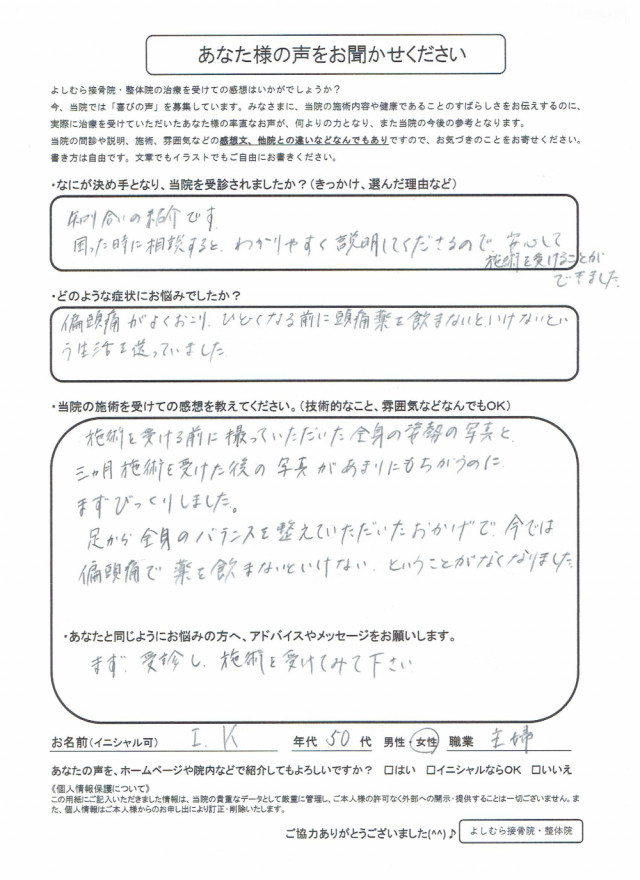 あなた様の声をお聞かせください
よしむら接骨院・整体院の治療を受けての感想はいかがでしょうか？
今、当院では「喜びの声」を募集しています。みなさまに、当院の施術内容や健康であることのすばらしさをお伝えするのに、
実際に治療を受けていただいたあなた様の率直なお声が、何よりの力となり、また当院の今後の参考となります。
当院の問診や説明、施術、雰囲気などの感想文、他院との違いなどなんでもありですので、お気づきのことをお寄せください。
書き方は自由です。文章でもイラストでもご自由にお書きください。
・なにが決め手となり、当院を受診されましたか？（きっかけ、選んだ理由など）
知り合いの紹介です
困った時に相談すると、わかりやすく説明してくださるので、安心して
施術を受けることが
できました
・どのような症状にお悩みでしたか？
偏頭痛がよくおこり、ひどくなる前に頭痛薬を飲まないといけないとい
う生活を送っていました
・当院の施術を受けての感想を教えてください。（技術的なこと、雰囲気などなんでもOK）
施術を受ける前に撮っていただいた全身の姿勢の写真と、
三ヵ月施術を受けた後の写真があまりにもちがうのに、
まずびっくりしました。
足から全身のバランスを整えていただいたおかげで、今では
偏頭痛で薬を飲まないといけない、ということがなくなりました
・あなたと同じようにお悩みの方へ、アドバイスやメッセージをお願いします。
まず、受診し、施術を受けてみて下さい
お名前（イニシャル可） I.K 年代 50 代 男性・女性 職業 主婦
あなたの声を、ホームページや院内などで紹介してもよろしいですか？ □はい □イニシャルならOK □いいえ
《個人情報保護について》
この用紙にご記入いただきました情報は、当院の貴重なデータとして厳重に管理し、ご本人様の許可なく外部への開示・提供することは一切ございません。ま
た、個人情報はご本人様からのお申し出により訂正・削除いたします。
ご協力ありがとうございました(^^)♪ よしむら接骨院・整体院